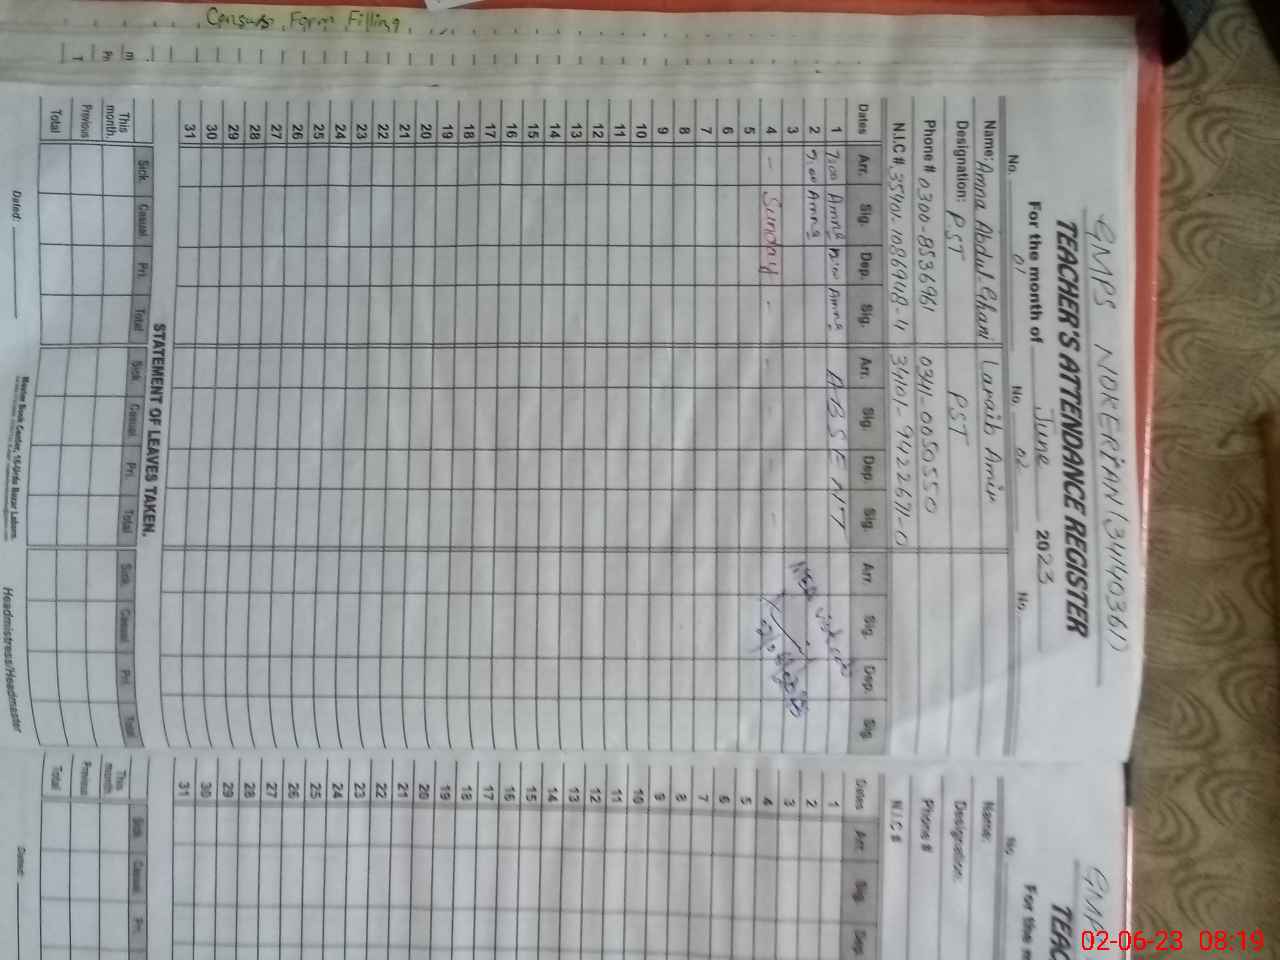 Census Form Filling
GMPS NOKERIAN (34140361)
TEACHER'S ATTENDANCE REGISTER
For the month of June 2023
No. 01 No. 02 No.
Name: Amna Abdul Ghani Laraib Amin
Designation: PST PST
Phone # 0300-8536961 0341-0050550
N.I.C # 35401-1086948-4 34101-9422671-0
Dates Arr. Sig. Dep. Sig. Arr. Sig. Dep. Sig. Arr. Sig. Dep. Sig.
1 7:00 Amna Amna ABSENT
2 7:00 Amna
3
4 - Sunday - - - - -
5
6
7
8
9
10
11
12
13
14
15
16
17
18
19
20
21
22
23
24
25
26
27
28
29
30
31
STATEMENT OF LEAVES TAKEN.
Sick. Casual Pri. Total Sick Casual Pri. Total Sick Casual Pri. Total
This month
Previous
Total
Dated:
Master Book Center, 16-Urdu Bazar Lahore.
Headmistress/Headmaster
GMP
TEAC
For the m
No.
Name:
Designation:
Phone #
N.I.C #
Dates Arr. Sig. Dep.
1
2
3
4
5
6
7
8
9
10
11
12
13
14
15
16
17
18
19
20
21
22
23
24
25
26
27
28
29
30
31
Sick Casual Pri.
This month
Previous
Total
Dated:
02-06-23 08:19